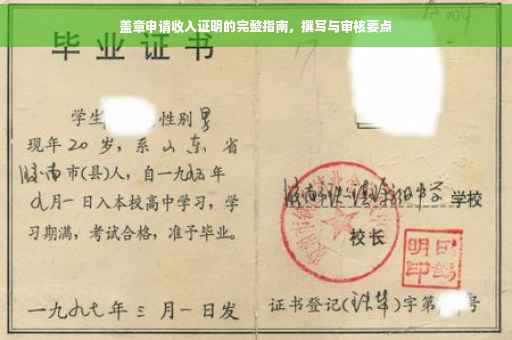 盖章申请收入证明的完整指南，撰写与审核要点
毕业证书
学生 性别 男
现年 20 岁，系 山东 省
济南 市(县)人，自一九九五年
九月一日入本校高中学习，学
习期满，考试合格，准予毕业。
一九九七年三月一日发
学校
校长
明印
证书登记( )字第 号